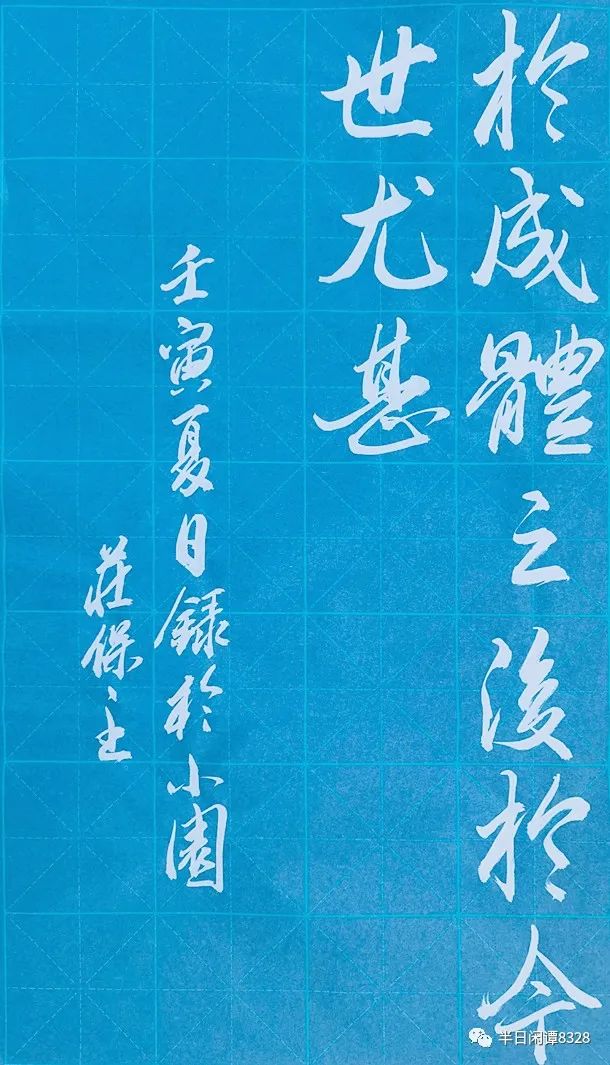 於成體之後於今
世尤甚
壬寅夏日錄於小園
莊保主
半日闲谭8328